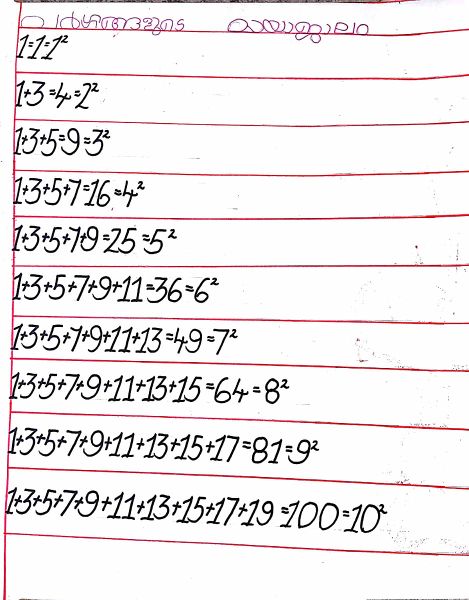 വർഗ്ഗങ്ങളുടെ മായാജാലം
1=1=1²
1+3=4=2²
1+3+5=9=3²
1+3+5+7=16=4²
1+3+5+7+9=25=5²
1+3+5+7+9+11=36=6²
1+3+5+7+9+11+13=49=7²
1+3+5+7+9+11+13+15=64=8²
1+3+5+7+9+11+13+15+17=81=9²
1+3+5+7+9+11+13+15+17+19=100=10²